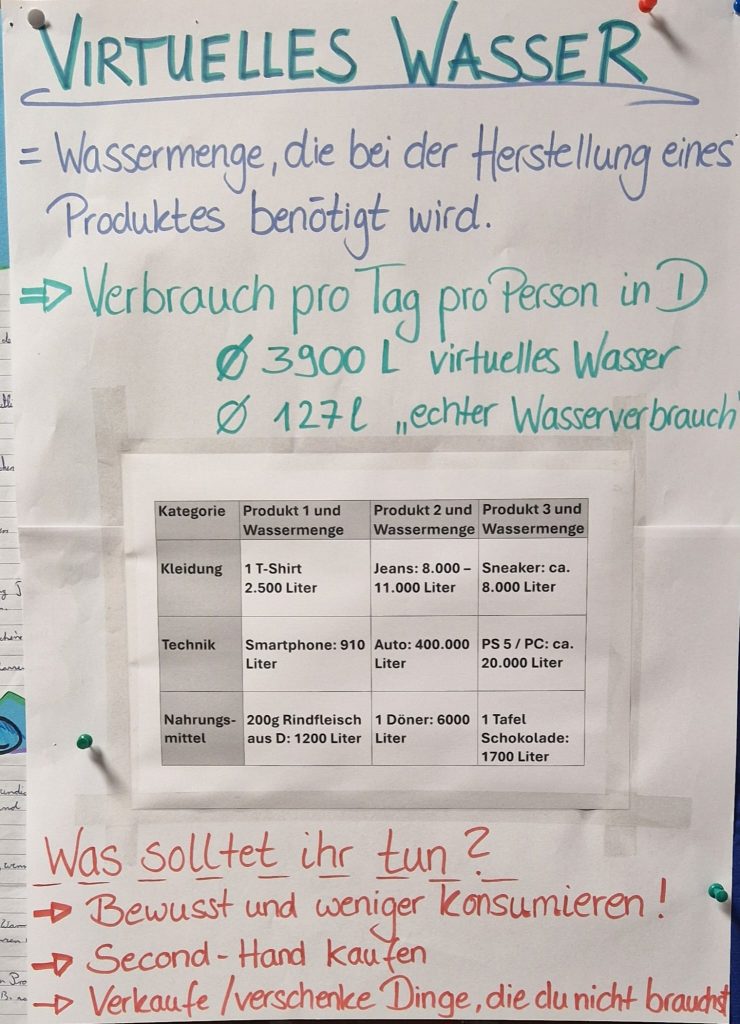 VIRTUELLES WASSER
= Wassermenge, die bei der Herstellung eines
Produktes benötigt wird.
⇒ Verbrauch pro Tag pro Person in D
Ø 3900 L virtuelles Wasser
Ø 127 l „echter Wasserverbrauch"
Kategorie | Produkt 1 und Wassermenge | Produkt 2 und Wassermenge | Produkt 3 und Wassermenge
Kleidung | 1 T-Shirt 2.500 Liter | Jeans: 8.000 – 11.000 Liter | Sneaker: ca. 8.000 Liter
Technik | Smartphone: 910 Liter | Auto: 400.000 Liter | PS 5 / PC: ca. 20.000 Liter
Nahrungs-mittel | 200g Rindfleisch aus D: 1200 Liter | 1 Döner: 6000 Liter | 1 Tafel Schokolade: 1700 Liter
Was solltet ihr tun?
→ Bewusst und weniger konsumieren!
→ Second-Hand kaufen
→ Verkaufe/verschenke Dinge, die du nicht brauchst